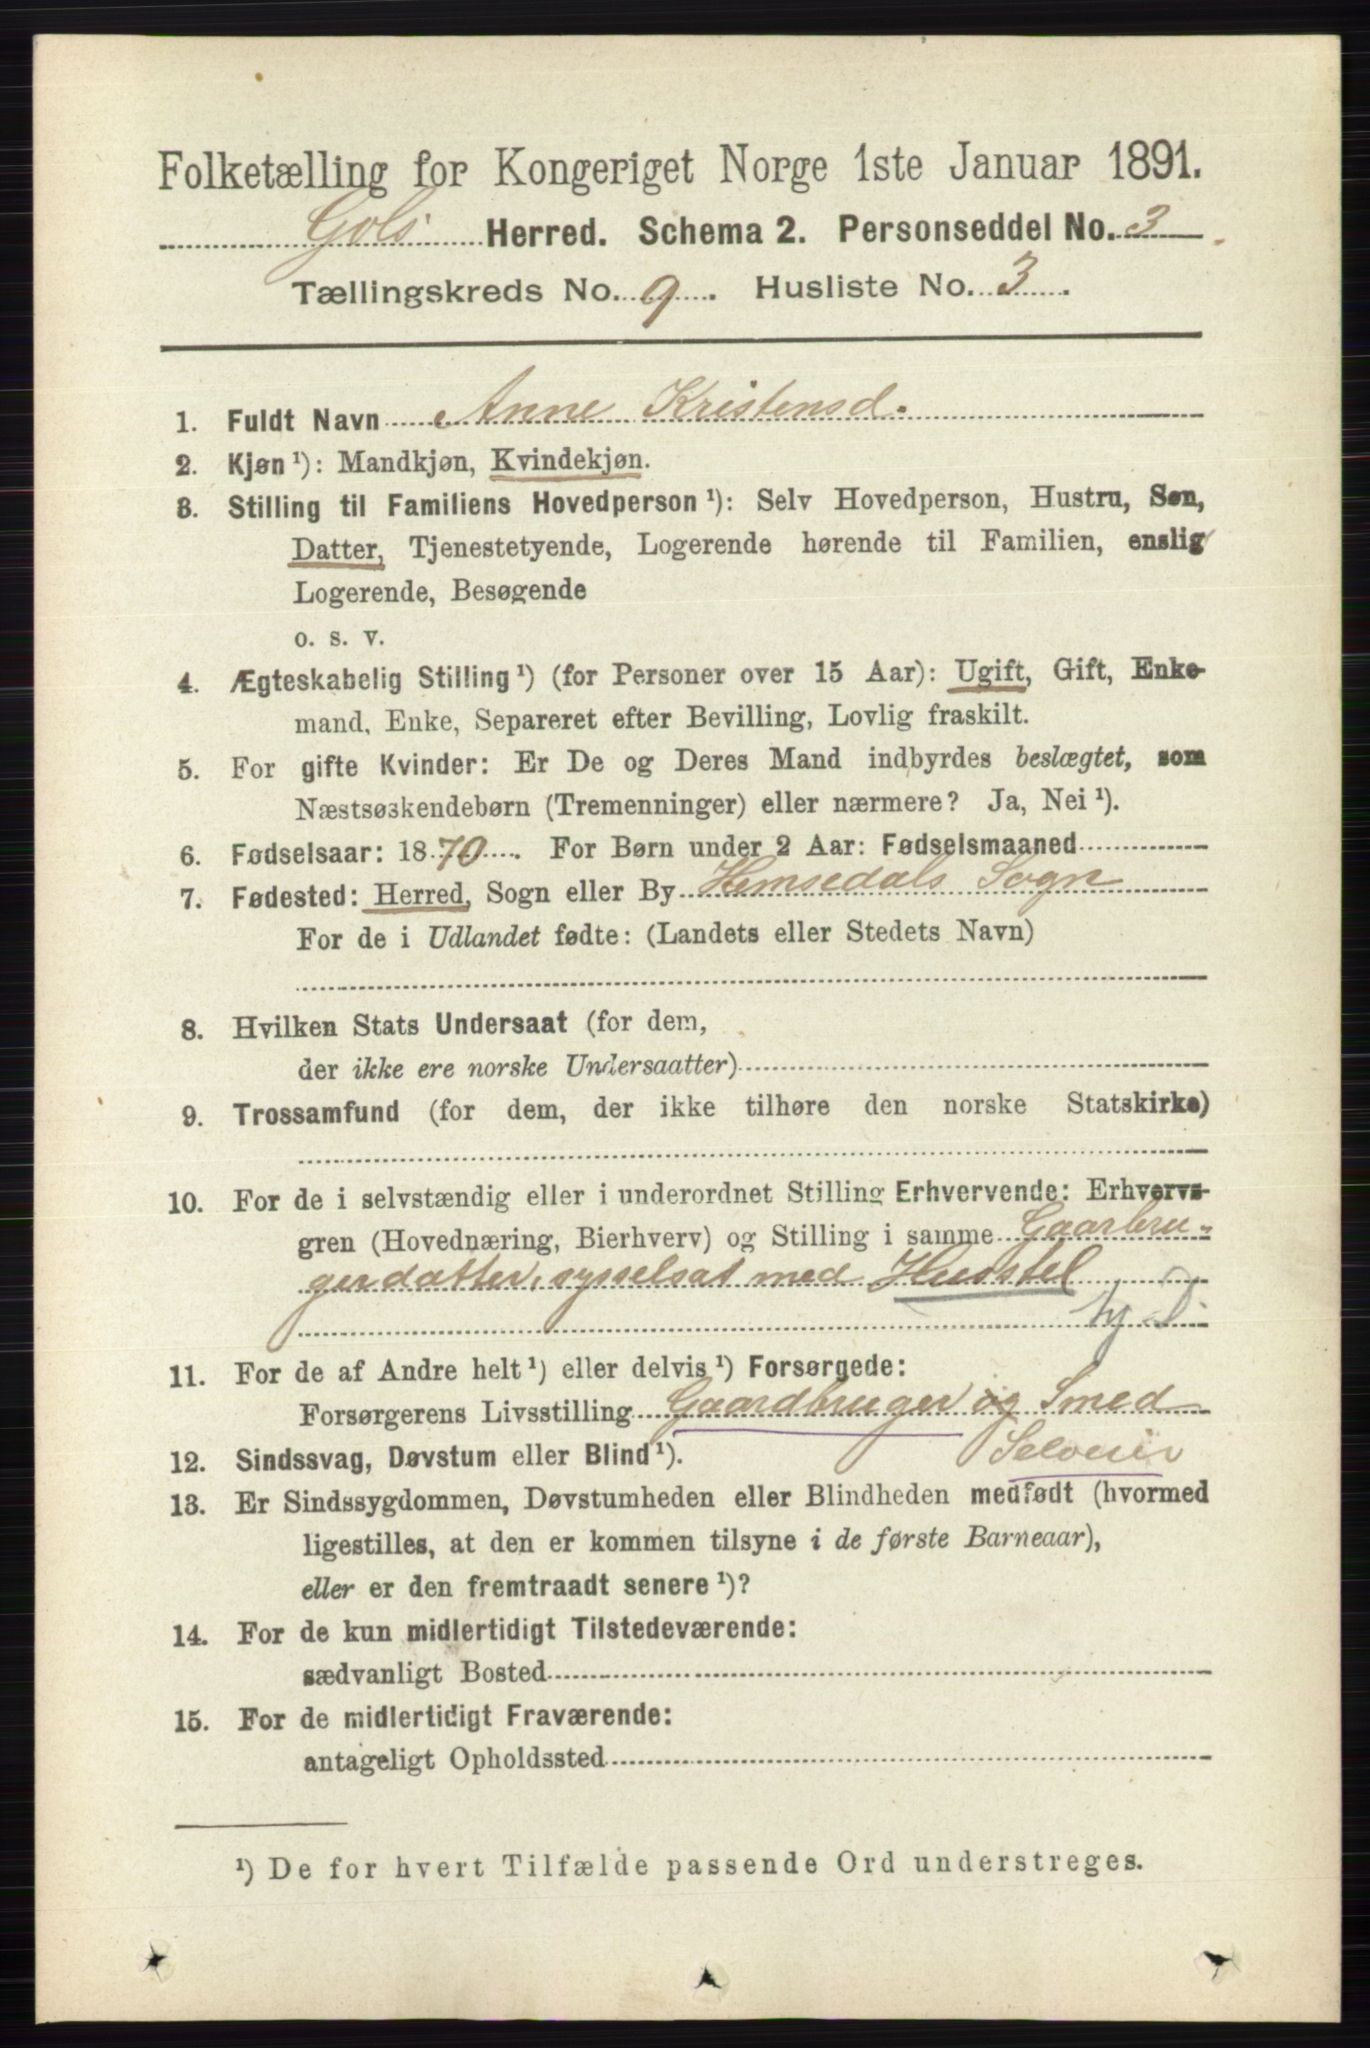 Folketælling for Kongeriget Norge 1ste Januar 1891.
Gols Herred. Schema 2. Personseddel No. 3
Tællingskreds No. 9. Husliste No. 3.
1. Fuldt Navn Anne Kristensd.
2. Kjøn ¹): Mandkjøn, Kvindekjøn.
3. Stilling til Familiens Hovedperson ¹): Selv Hovedperson, Hustru, Søn,
Datter, Tjenestetyende, Logerende hørende til Familien, enslig
Logerende, Besøgende
o. s. v.
4. Ægteskabelig Stilling ¹) (for Personer over 15 Aar): Ugift, Gift, Enke-
mand, Enke, Separeret efter Bevilling, Lovlig fraskilt.
5. For gifte Kvinder: Er De og Deres Mand indbyrdes beslægtet, som
Næstsøskendebørn (Tremenninger) eller nærmere? Ja, Nei ¹).
6. Fødselsaar: 1870. For Børn under 2 Aar: Fødselsmaaned
7. Fødested: Herred, Sogn eller By Hemsedals Sogn
For de i Udlandet fødte: (Landets eller Stedets Navn)
8. Hvilken Stats Undersaat (for dem,
der ikke ere norske Undersaatter)
9. Trossamfund (for dem, der ikke tilhøre den norske Statskirke)
10. For de i selvstændig eller i underordnet Stilling Erhvervende: Erhvervs-
gren (Hovednæring, Bierhverv) og Stilling i samme Gaarbru-
gerdatter, sysselsat med Husstel
hj. D.
11. For de af Andre helt ¹) eller delvis ¹) Forsørgede:
Forsørgerens Livsstilling Gaardbruger og Smed
12. Sindssvag, Døvstum eller Blind ¹). Seloeier
13. Er Sindssygdommen, Døvstumheden eller Blindheden medfødt (hvormed
ligestilles, at den er kommen tilsyne i de første Barneaar),
eller er den fremtraadt senere ¹)?
14. For de kun midlertidigt Tilstedeværende:
sædvanligt Bosted
15. For de midlertidigt Fraværende:
antageligt Opholdssted
¹) De for hvert Tilfælde passende Ord understreges.